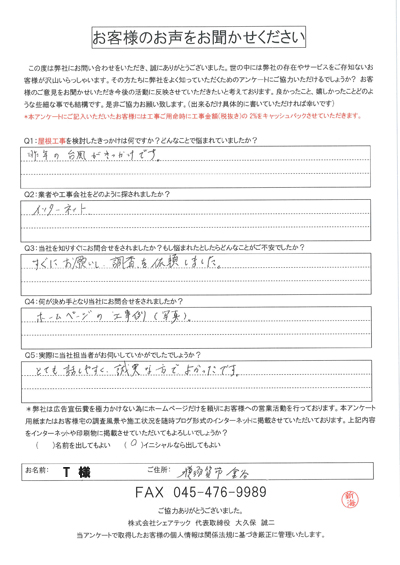 お客様のお声をお聞かせください
この度は弊社にお問い合わせをいただき、誠にありがとうございました。世の中には弊社の存在やサービスをご存知ないお
客様が沢山いらっしゃいます。その方たちに弊社をよく知っていただくためのアンケートにご協力いただけるでしょうか？ お客
様のご意見をお聞かせいただき今後の活動に反映させていただきたいと考えております。良かったこと、嬉しかったことどのよ
うな些細な事でも結構です。是非ご協力お願い致します。（出来るだけ具体的に書いていただければ幸いです）
*本アンケートにご記入いただいたお客様には工事ご用命時に工事金額(税抜き)の 2%をキャッシュバックさせていただきます。
Q1：屋根工事を検討したきっかけは何ですか？どんなことで悩まれていましたか？
昨年の台風がきっかけです。
Q2：業者や工事会社をどのように探されましたか？
インターネット
Q3：当社を知りすぐにお問合せをされましたか？もし悩まれたとしたらどんなことがご不安でしたか？
すぐにお願いし、調査を依頼しました。
Q4：何が決め手となり当社にお問合せをされましたか？
ホームページの工事例（写真）。
Q5：実際に当社担当者がお伺いしていかがでしたでしょうか？
とても話しやすく、誠実な方でよかったです。
＊弊社は広告宣伝費を極力かけない為にホームページだけを頼りにお客様への営業活動を行っております。本アンケート
用紙またはお客様宅の調査風景や施工状況を随時ブログ形式のインターネットに掲載させていただいております。上記内容
をインターネットや印刷物に掲載させていただいてもよろしいでしょうか？
（　　）名前を出してもよい　（ O ）イニシャルなら出してもよい
お名前： T 様 ご住所： 横須賀市
FAX 045-476-9989
ご協力ありがとうございました。
株式会社シェアテック 代表取締役 大久保 誠二
当アンケートで取得したお客様の個人情報は関係法規に基づき厳正に管理いたします。